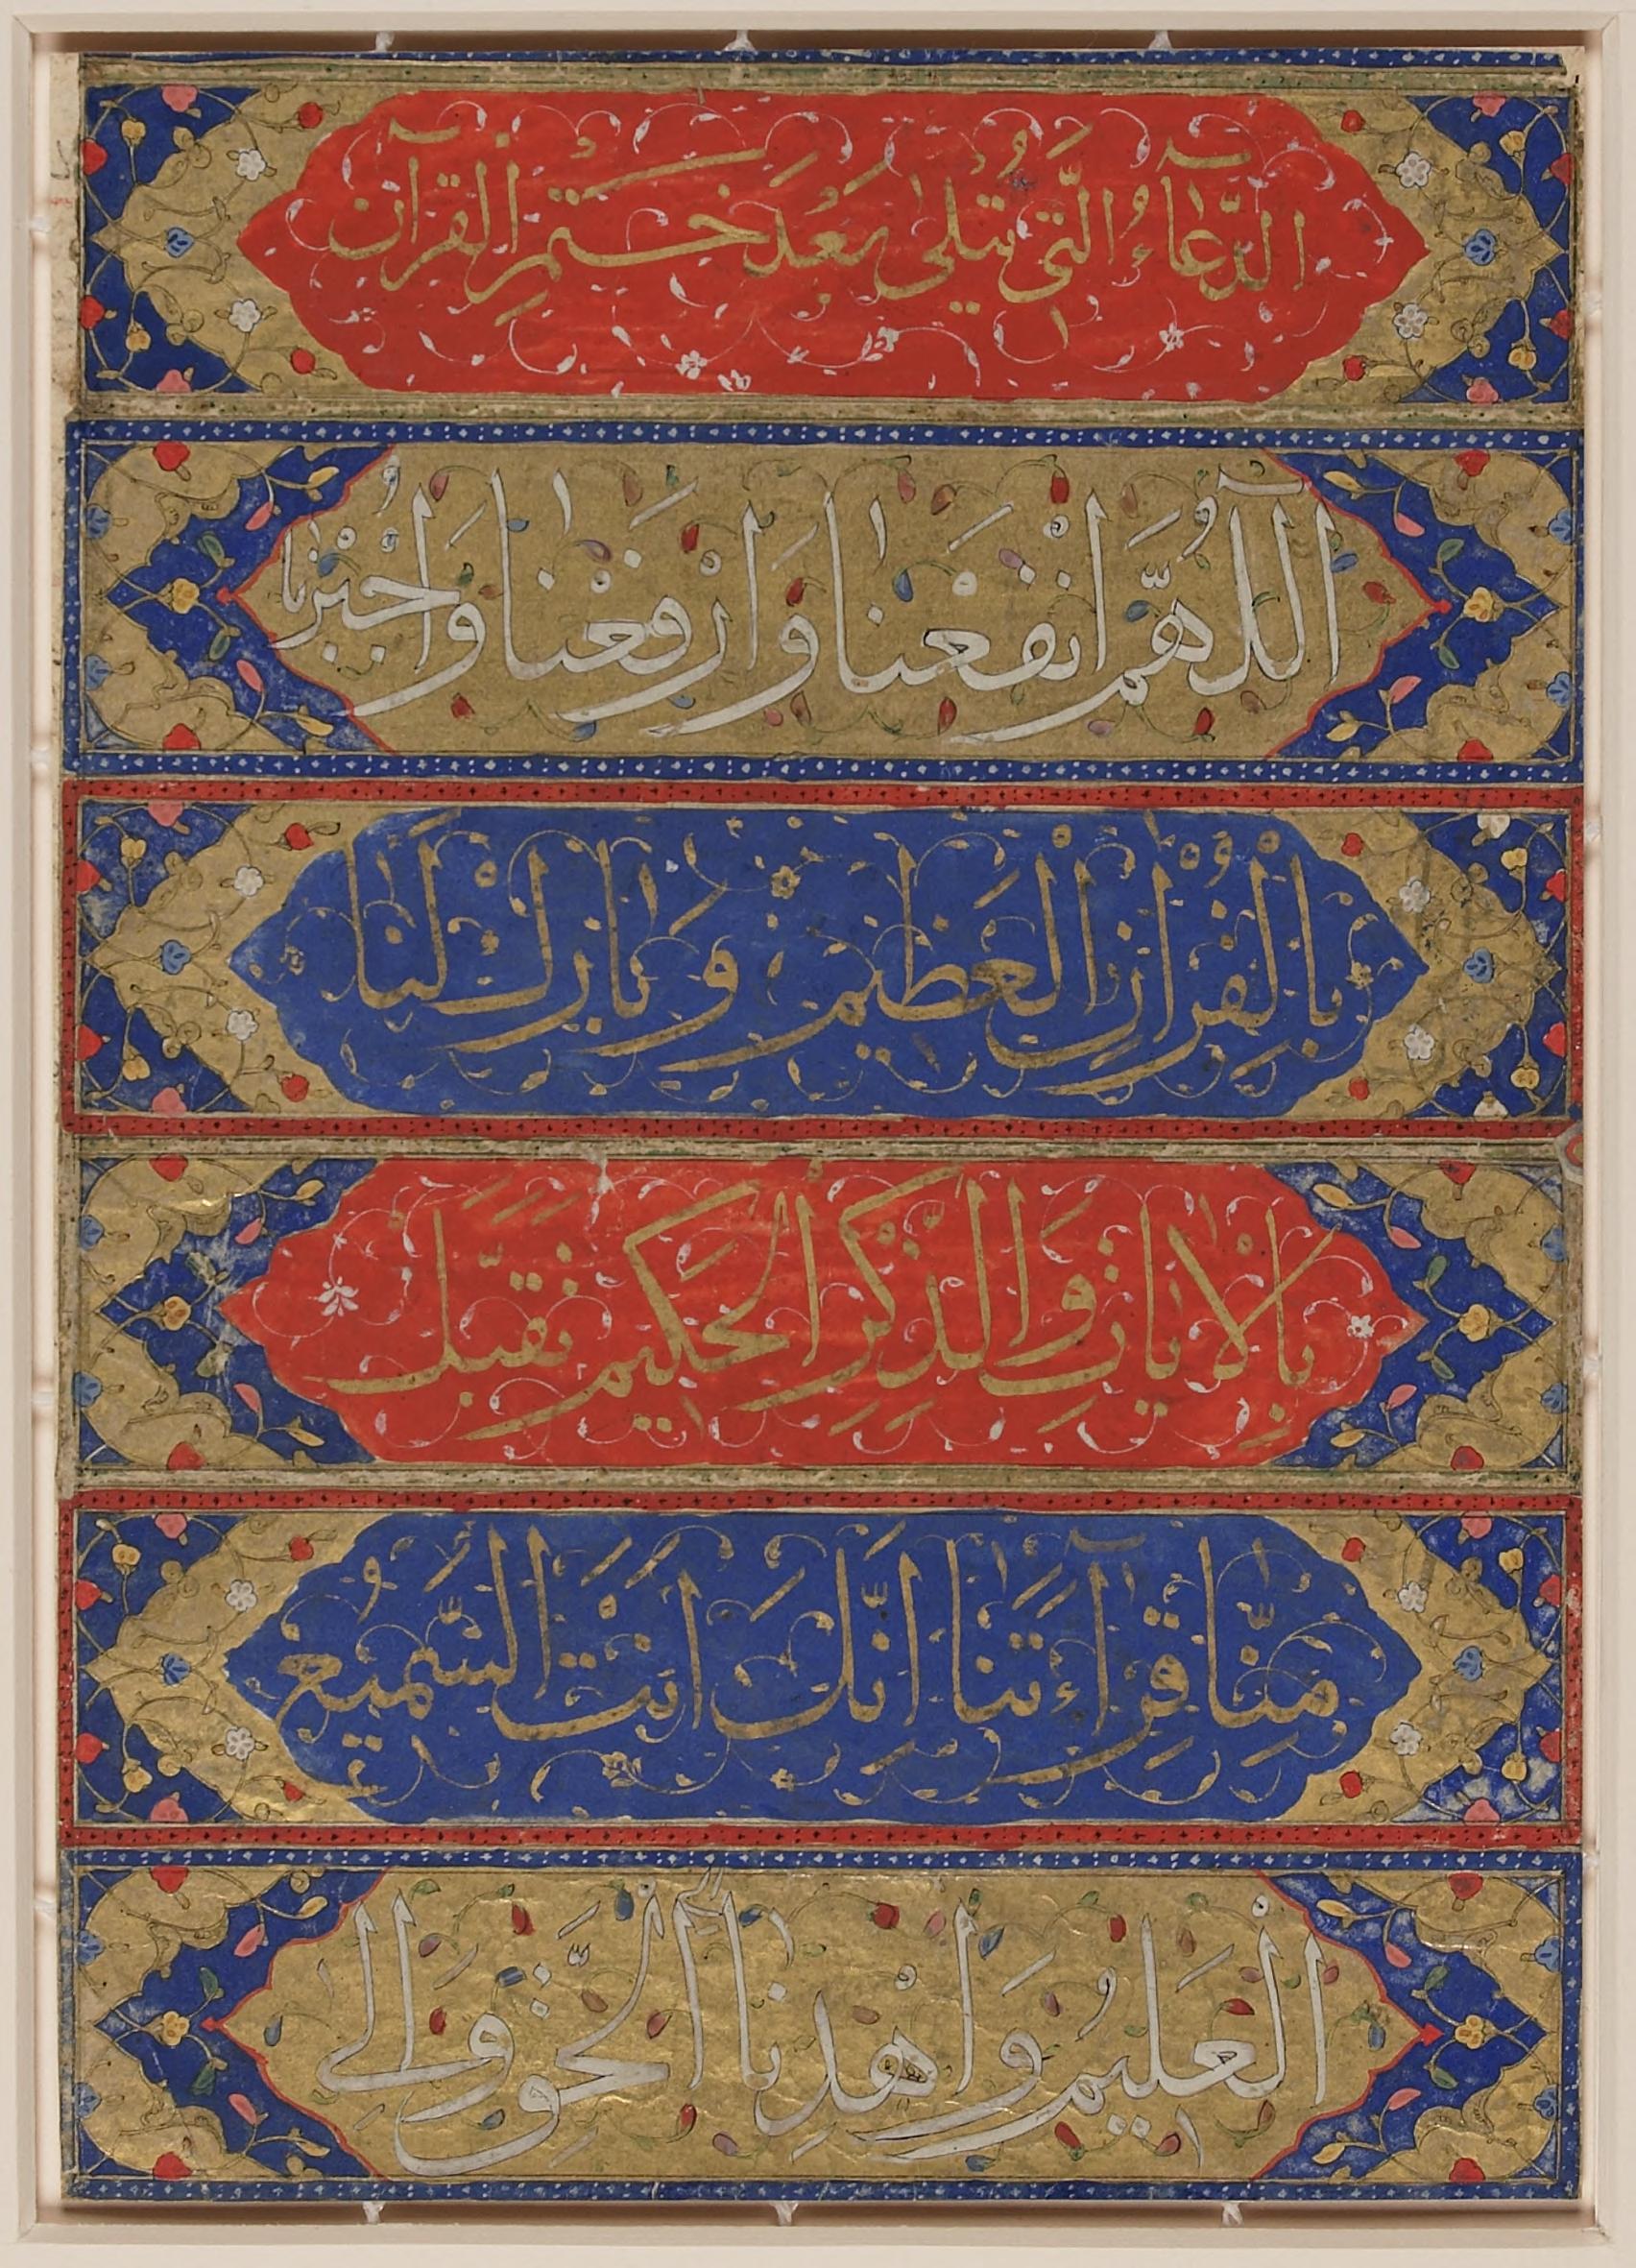 الدُّعَآءُ الَّتِي تُتْلٰى بَعْدَ خَتْمِ القُرآن
اَللّٰهُمَّ انْفَعْنَا وَارْفَعْنَا وَاجْبُرْنَا
بِالْقُرْاٰنِ الْعَظِيمِ وَبَارِكْ لَنَا
بِالْاٰيَاتِ وَالذِّكْرِ الْحَكِيمِ تَقَبَّلْ
مِنَّا قِرَآءَتَنَا اِنَّكَ اَنْتَ السَّمِيعُ
الْعَلِيمُ وَاهْدِنَا اِلَى الْحَقِّ وَاِلٰى